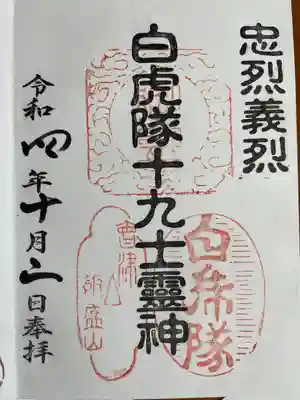 忠烈義烈
白虎隊十九士靈神
白虎隊
會津
飯盛山
令和四年十月二日奉拝